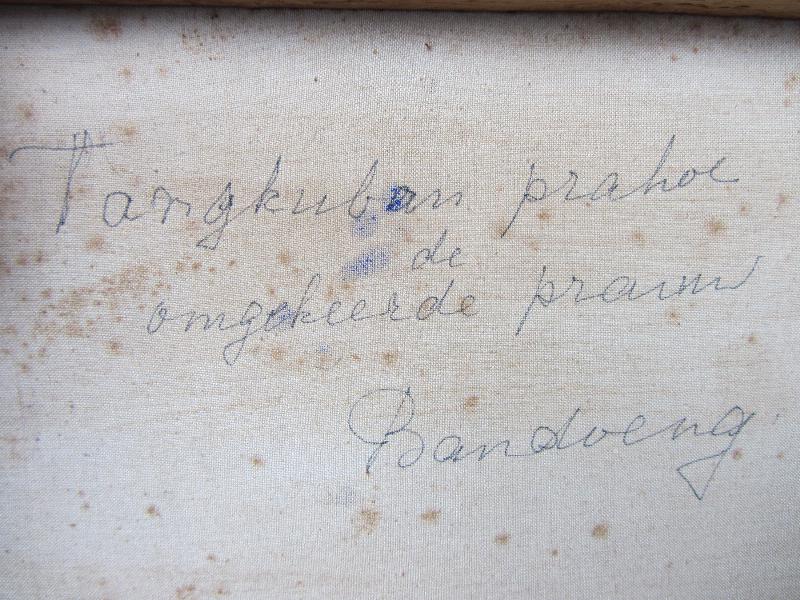 Tangkuban prahoe
de
omgekeerde prauw
Bandoeng